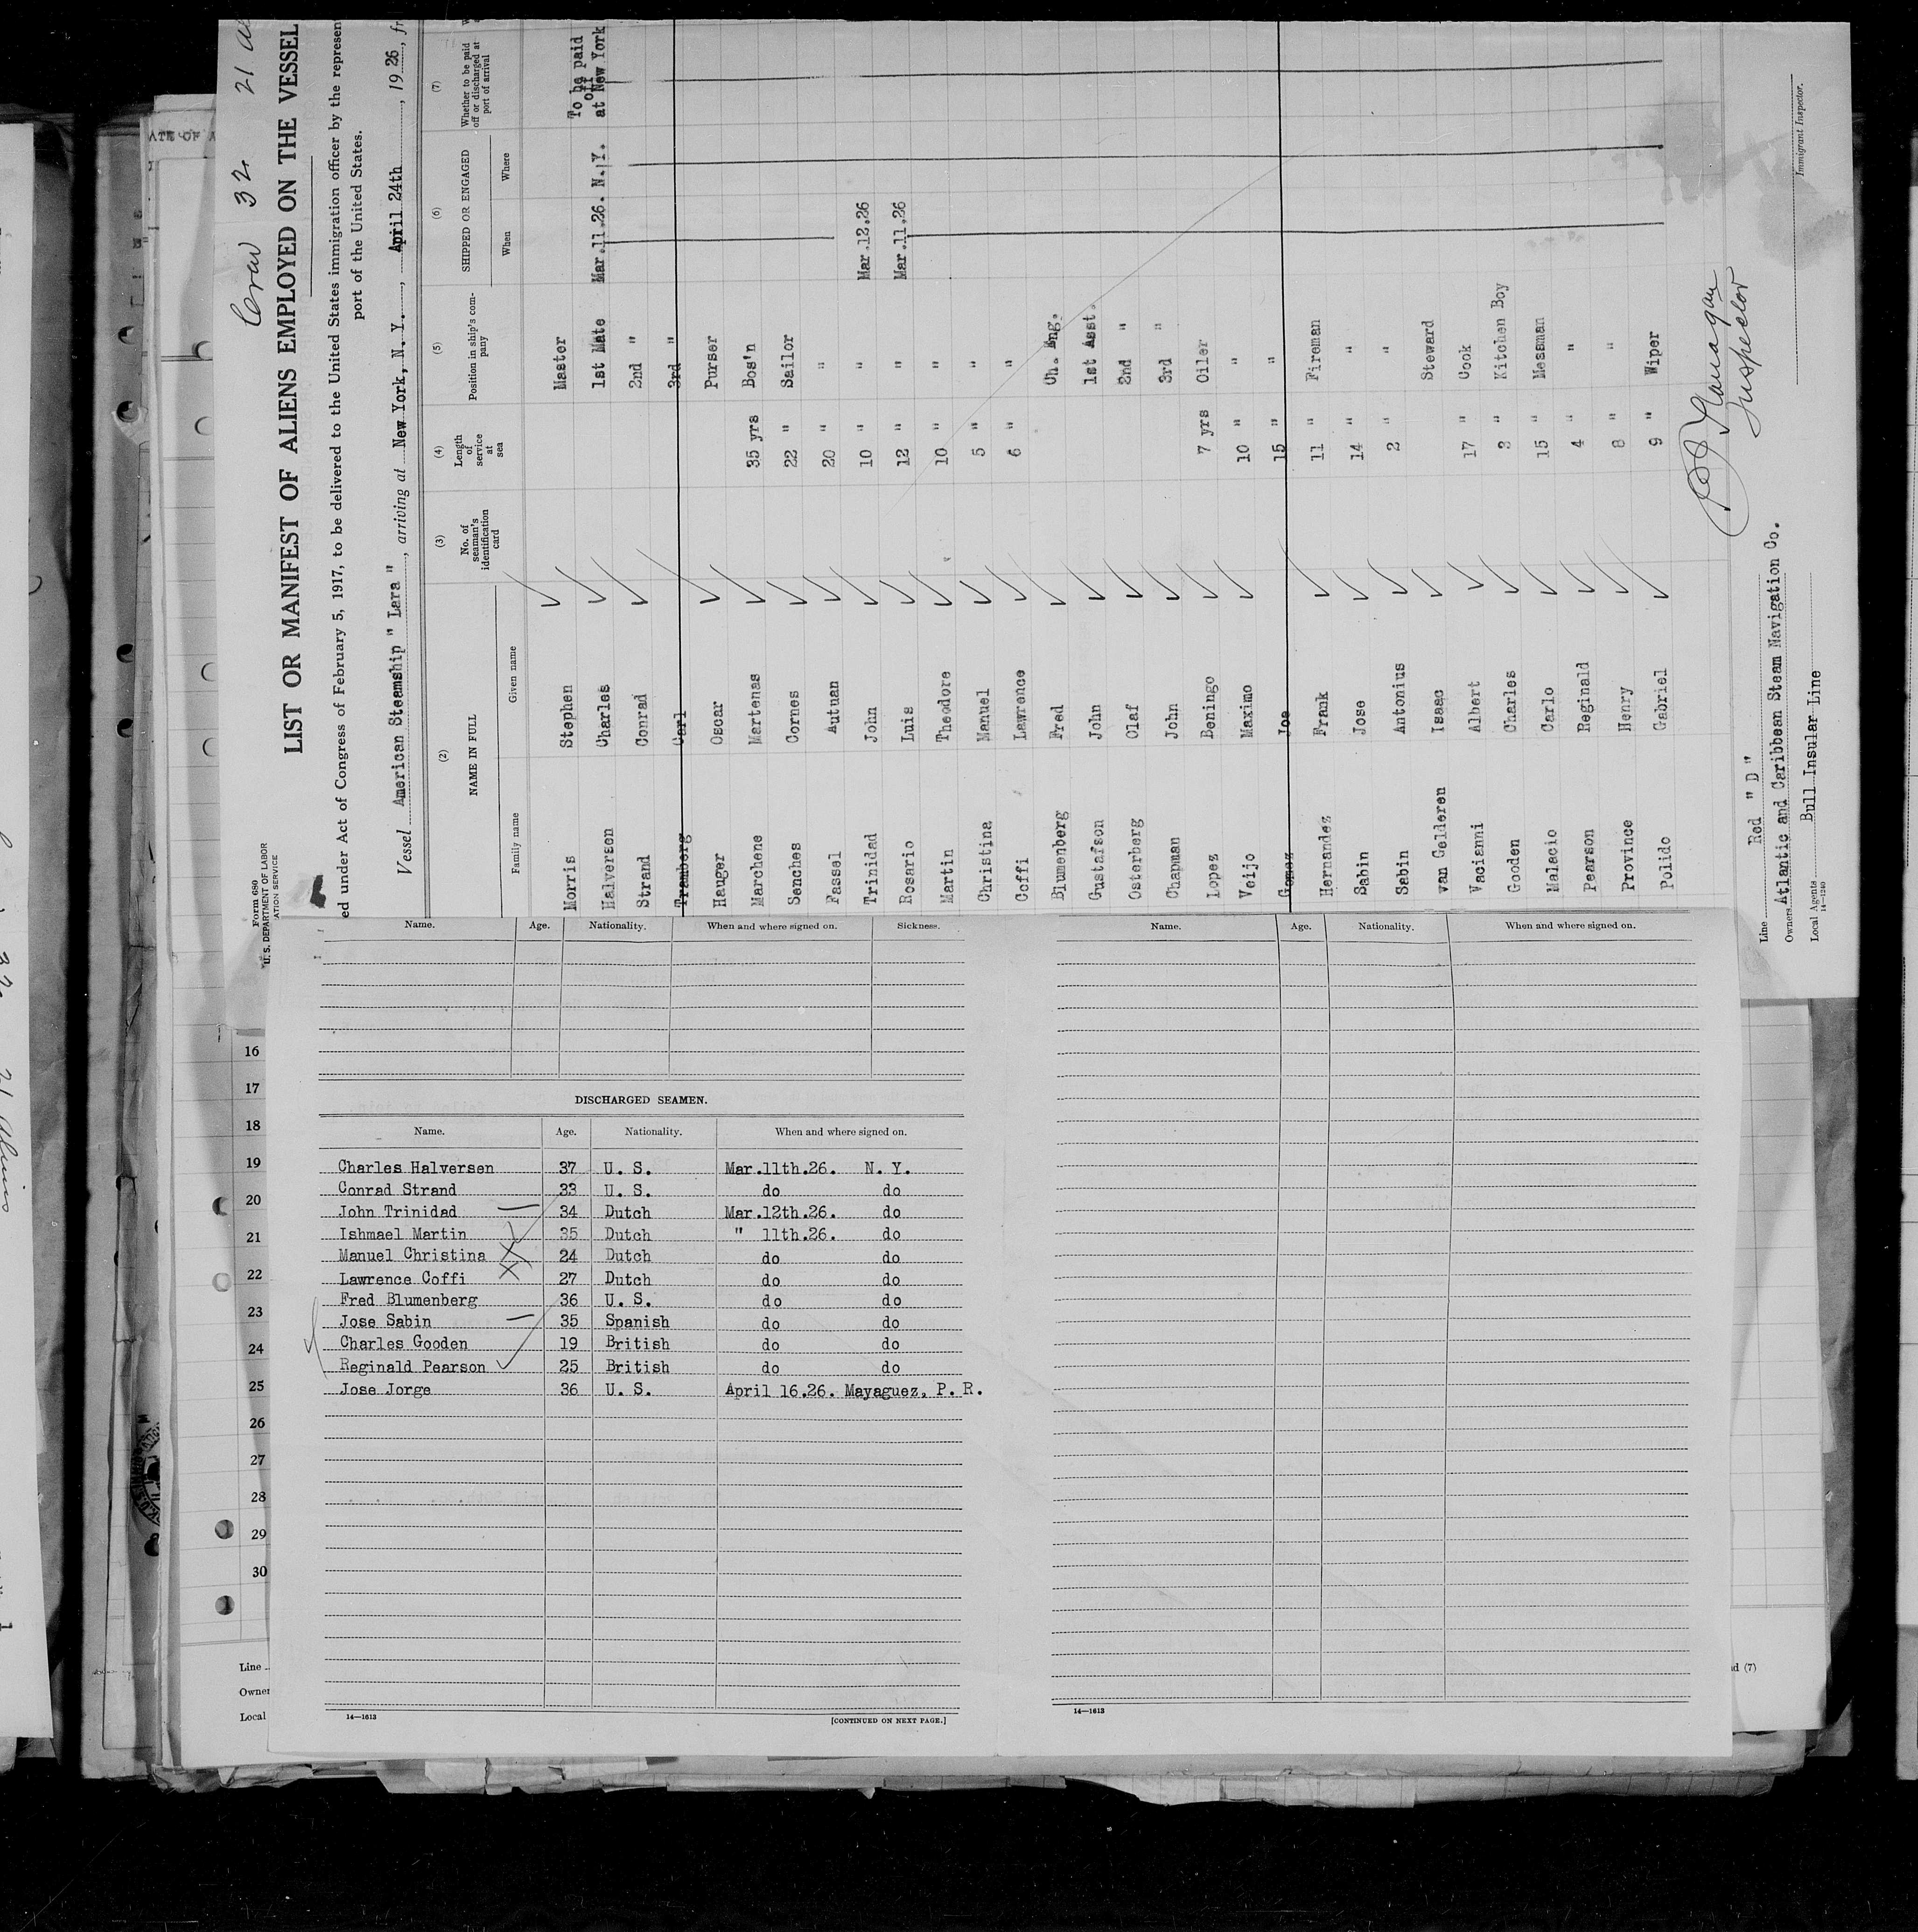 Crew 32 21
Form 680
U. S. DEPARTMENT OF LABOR
ATION SERVICE
LIST OR MANIFEST OF ALIENS EMPLOYED ON THE VESSEL
ed under Act of Congress of February 5, 1917, to be delivered to the United States immigration officer by the represen
port of the United States.
Vessel American Steamship " Lara ", arriving at New York, N. Y., April 24th, 1926, fr
(2) (3) (4) (5) (6) (7)
NAME IN FULL No. of seaman's identification card Length of service at sea Position in ship's company SHIPPED OR ENGAGED Whether to be paid off or discharged at port of arrival
Family name Given name When Where
Morris Stephen Master
Halversen Charles 1st Mate Mar.11.26. N.Y. To be paid off at New York
Strand Conrad 2nd "
Tramberg Carl 3rd "
Hauger Oscar Purser
Marchene Martenas 35 yrs Bos'n
Senches Cornes 22 " Sailor
Fassel Autuan 20 " "
Trinidad John 10 " " Mar.12.26
Rosario Luis 12 " " Mar.11.26
Martin Theodore 10 " "
Christina Manuel 5 " "
Coffi Lawrence 6 " "
Blumenberg Fred Ch. Eng.
Gustafson John 1st Asst.
Osterberg Olaf 2nd "
Chapman John 3rd "
Lopez Beningo 7 yrs Oiler
Veijo Maximo 10 " "
Gomez Joe 15 " "
Hernandez Frank 11 " Fireman
Sabin Jose 14 " "
Sabin Antonius 2 " "
van Gelderen Isaac Steward
Vacianni Albert 17 " Cook
Gooden Charles 3 " Kitchen Boy
Malacio Carlo 15 " Messman
Pearson Reginald 4 " "
Province Henry 8 " "
Polido Gabriel 9 " Wiper
Inspector
Line Red " D "
Owners Atlantic and Caribbean Steam Navigation Co.
Local Agents Bull Insular Line
14—1240
Immigrant Inspector.
Name. Age. Nationality. When and where signed on. Sickness.
DISCHARGED SEAMEN.
Name. Age. Nationality. When and where signed on.
Charles Halversen 37 U. S. Mar.11th.26. N. Y.
Conrad Strand 33 U. S. do do
John Trinidad 34 Dutch Mar.12th.26. do
Ishmael Martin 35 Dutch " 11th.26. do
Manuel Christina 24 Dutch do do
Lawrence Coffi 27 Dutch do do
Fred Blumenberg 36 U. S. do do
Jose Sabin 35 Spanish do do
Charles Gooden 19 British do do
Reginald Pearson 25 British do do
Jose Jorge 36 U. S. April 16.26. Mayaguez, P. R.
14—1613 [CONTINUED ON NEXT PAGE.]
Name. Age. Nationality. When and where signed on.
14—1613
16
17
18
19
20
21
22
23
24
25
26
27
28
29
30
Line
Owner
Local
d (7)